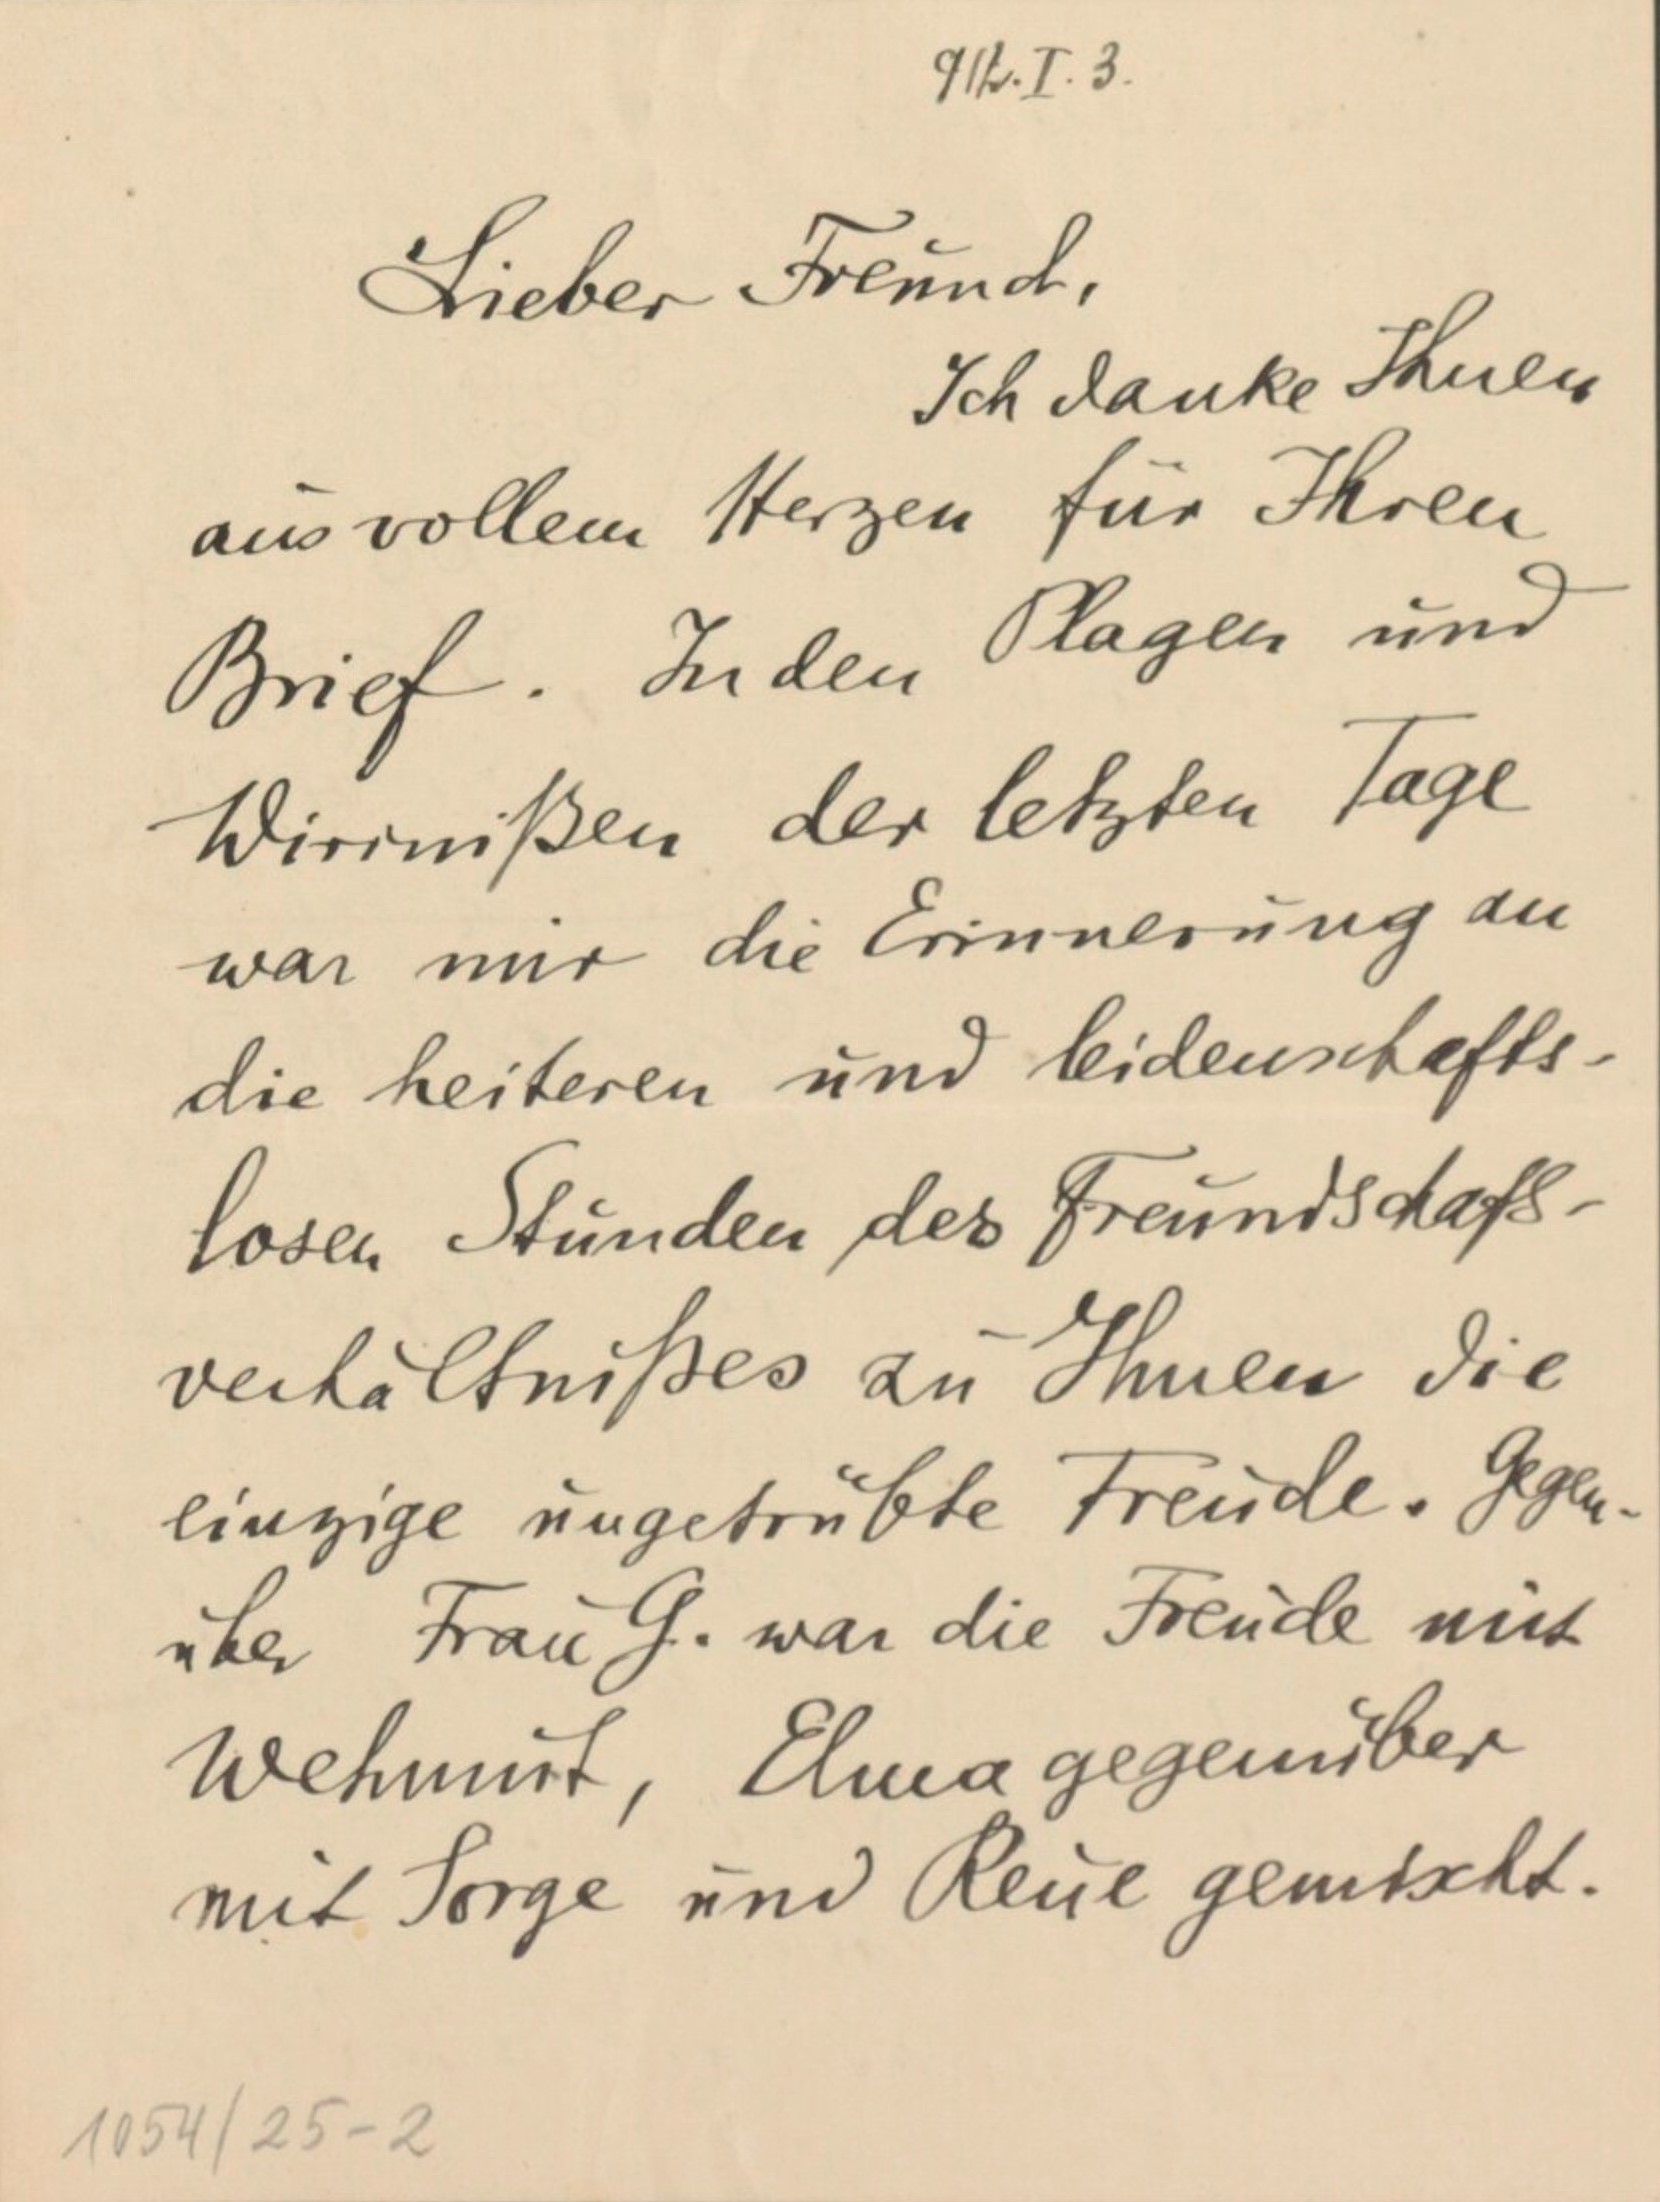 912. I. 3.
Lieber Freund,
Ich danke Ihnen
aus vollem Herzen für Ihren
Brief. In den Plagen und
Wirrnißen der letzten Tage
war mir die Erinnerung an
die heiteren und leidenschafts-
losen Stunden des Freundschafts-
verhältnißes zu Ihnen die
einzige ungetrübte Freude. Gegen-
über Frau G. war die Freude mit
Wehmut, Elma gegenüber
mit Sorge und Reue gemischt.
1054/25-2